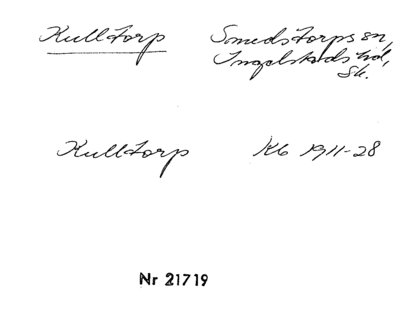 Kulltorp Smedstorps sn,
Ingelstads hd,
Sk.
Kulltorp Kb 1911-28
Nr 21719